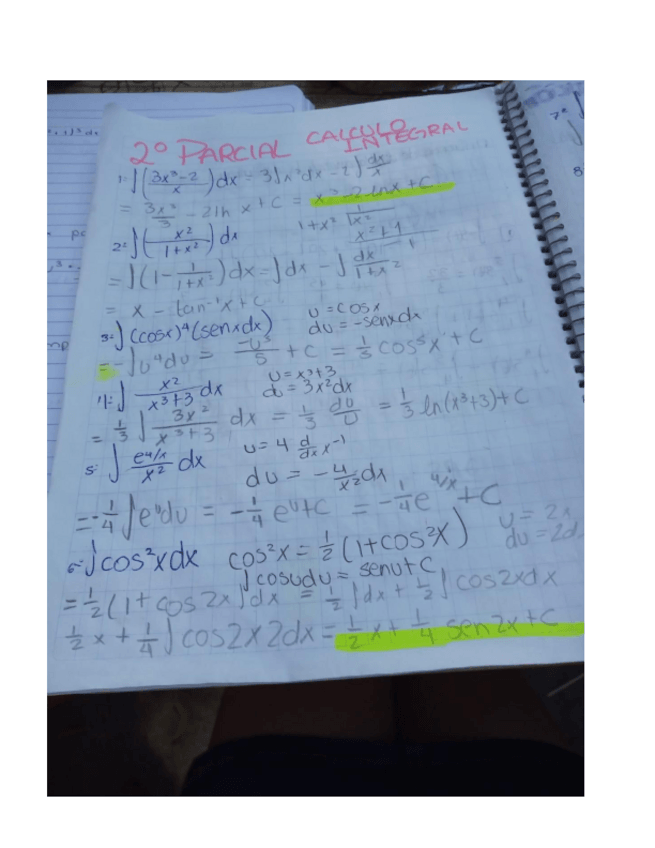 2° PARCIAL CALCULO INTEGRAL
1: ∫(3x³-2/x)dx = 3∫x²dx - 2∫dx/x
= 3x³/3 - 2ln x + C = x³ - 2 lnx + C
2: ∫(x²/1+x²)dx
= ∫(1 - 1/1+x²)dx = ∫dx - ∫dx/1+x²
= x - tan⁻¹x + C
3: ∫(cosx)⁴(senxdx) u = cosx
du = -senxdx
= -∫u⁴du = -u⁵/5 + C = 1/5 cos⁵x + C
4: ∫ x²/x³+3 dx u = x³+3
du = 3x²dx
= 1/3 ∫ 3x²/x³+3 dx = 1/3 du/U = 1/3 ln(x³+3) + C
5: ∫ e⁴/ˣ/x² dx u = 4 d/dx x⁻¹
du = -4/x² dx
= -1/4 ∫eᵘdu = -1/4 eᵘ + C = -1/4 e⁴/ˣ + C
6: ∫cos²xdx cos²x = 1/2 (1+cos2x) u = 2x
∫cosudu = senu + C
= 1/2 (1 + cos 2x)dx = 1/2 ∫dx + 1/2 ∫cos2xdx
1/2 x + 1/4 ∫cos2x2dx = 1/2 x + 1/4 sen2x + C